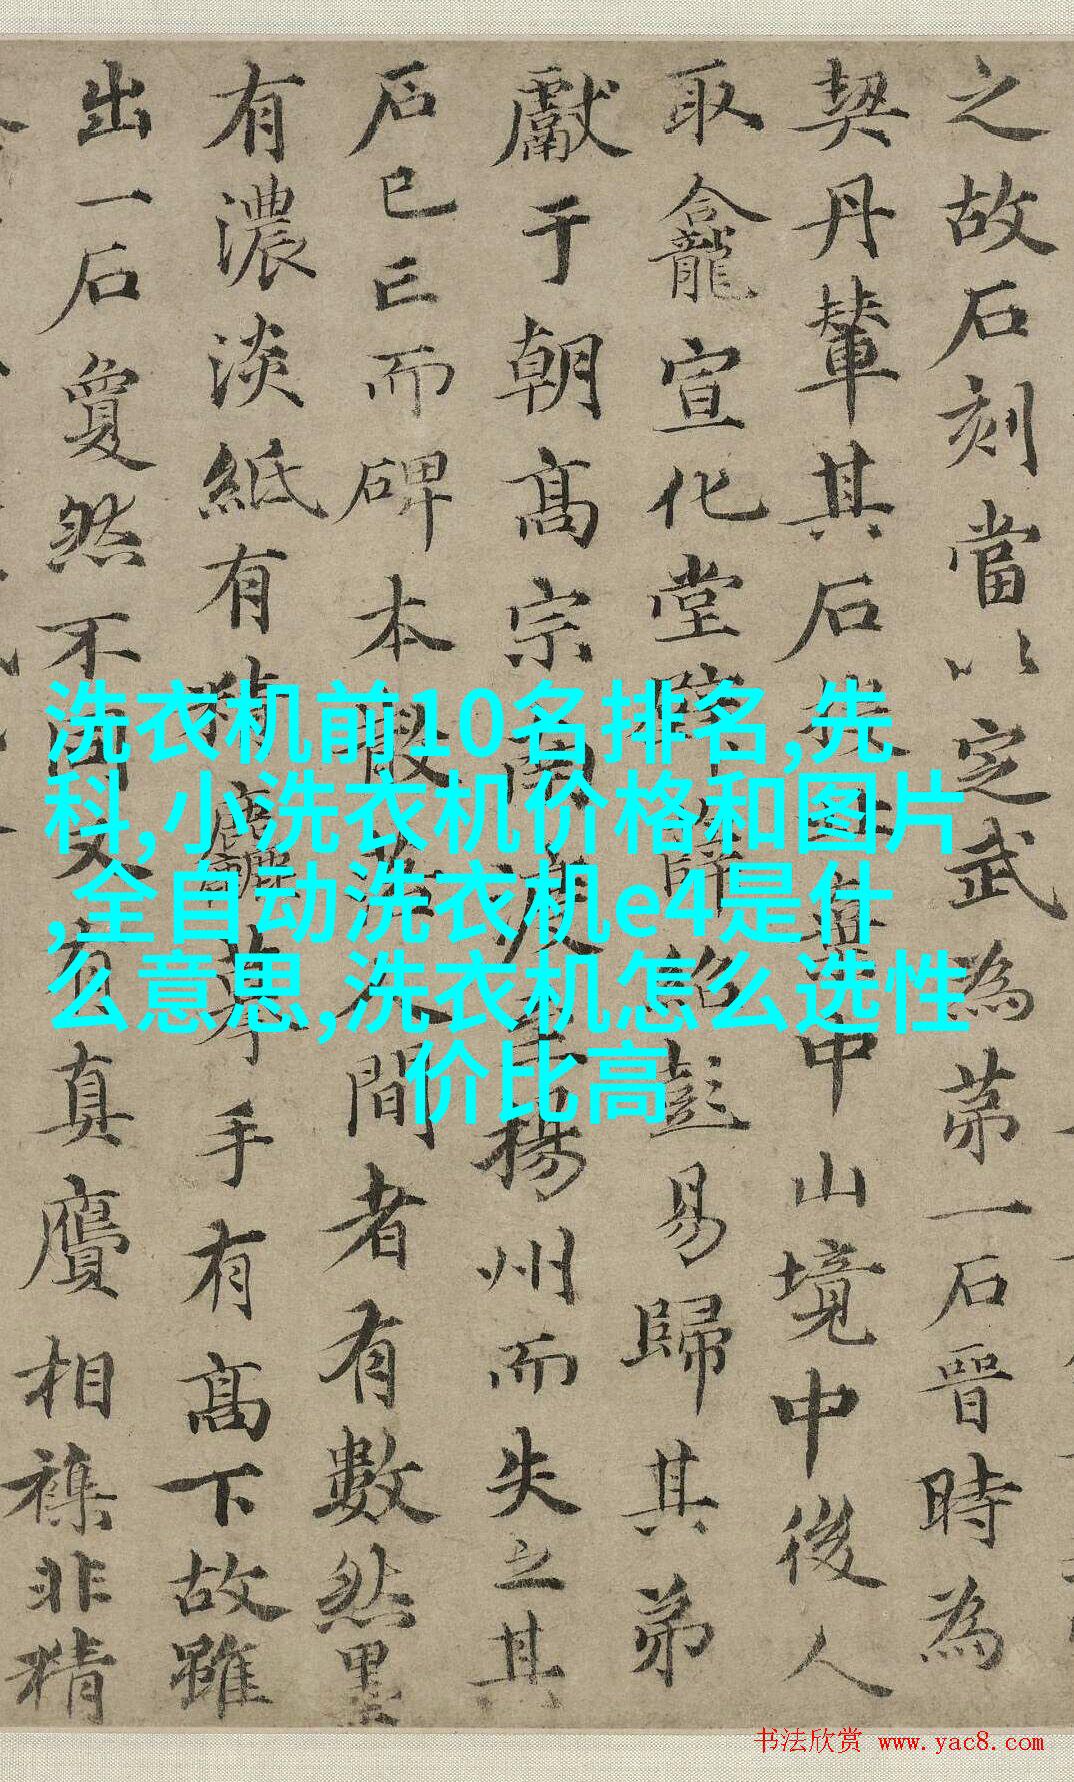 之故石刻當以定武為苐一石晋時為
契丹輦其石
中山境中後人
取龕宣化堂
彭易歸其弟
獻于朝髙宗
揚州而失之其
石已亡而碑本
間者有數然墨
有濃淡紙有
手有髙下故雖
出一石夐然不
有真贋相襍非精
洗衣机前10名排名,先
科,小洗衣机价格和图片
,全自动洗衣机e4是什
么意思,洗衣机怎么选性
价比高
书法欣赏 www.yac8.com